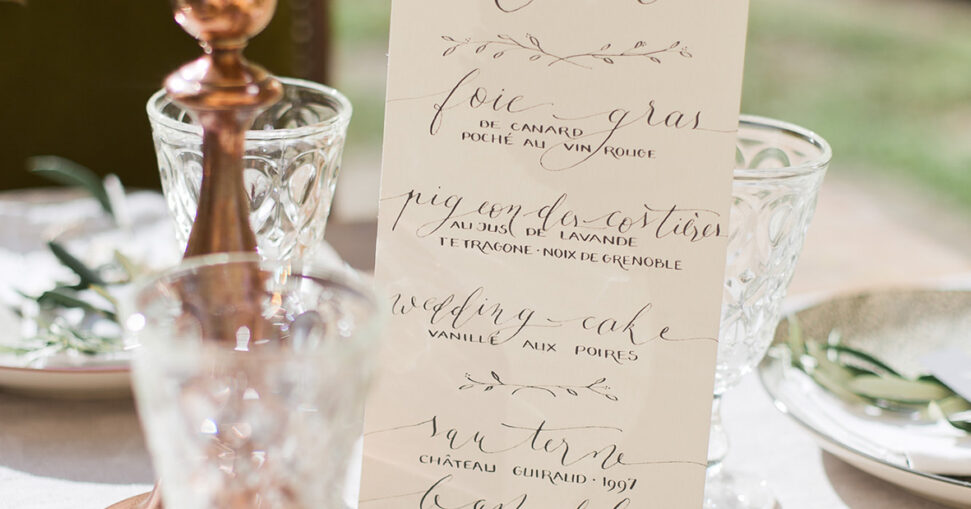 foie gras
DE CANARD
POCHÉ AU VIN ROUGE
pigeon des costières
AU JUS DE LAVANDE
TETRAGONE · NOIX DE GRENOBLE
wedding-cake
VANILLÉ AUX POIRES
sauterne
CHÂTEAU GUIRAUD · 1997